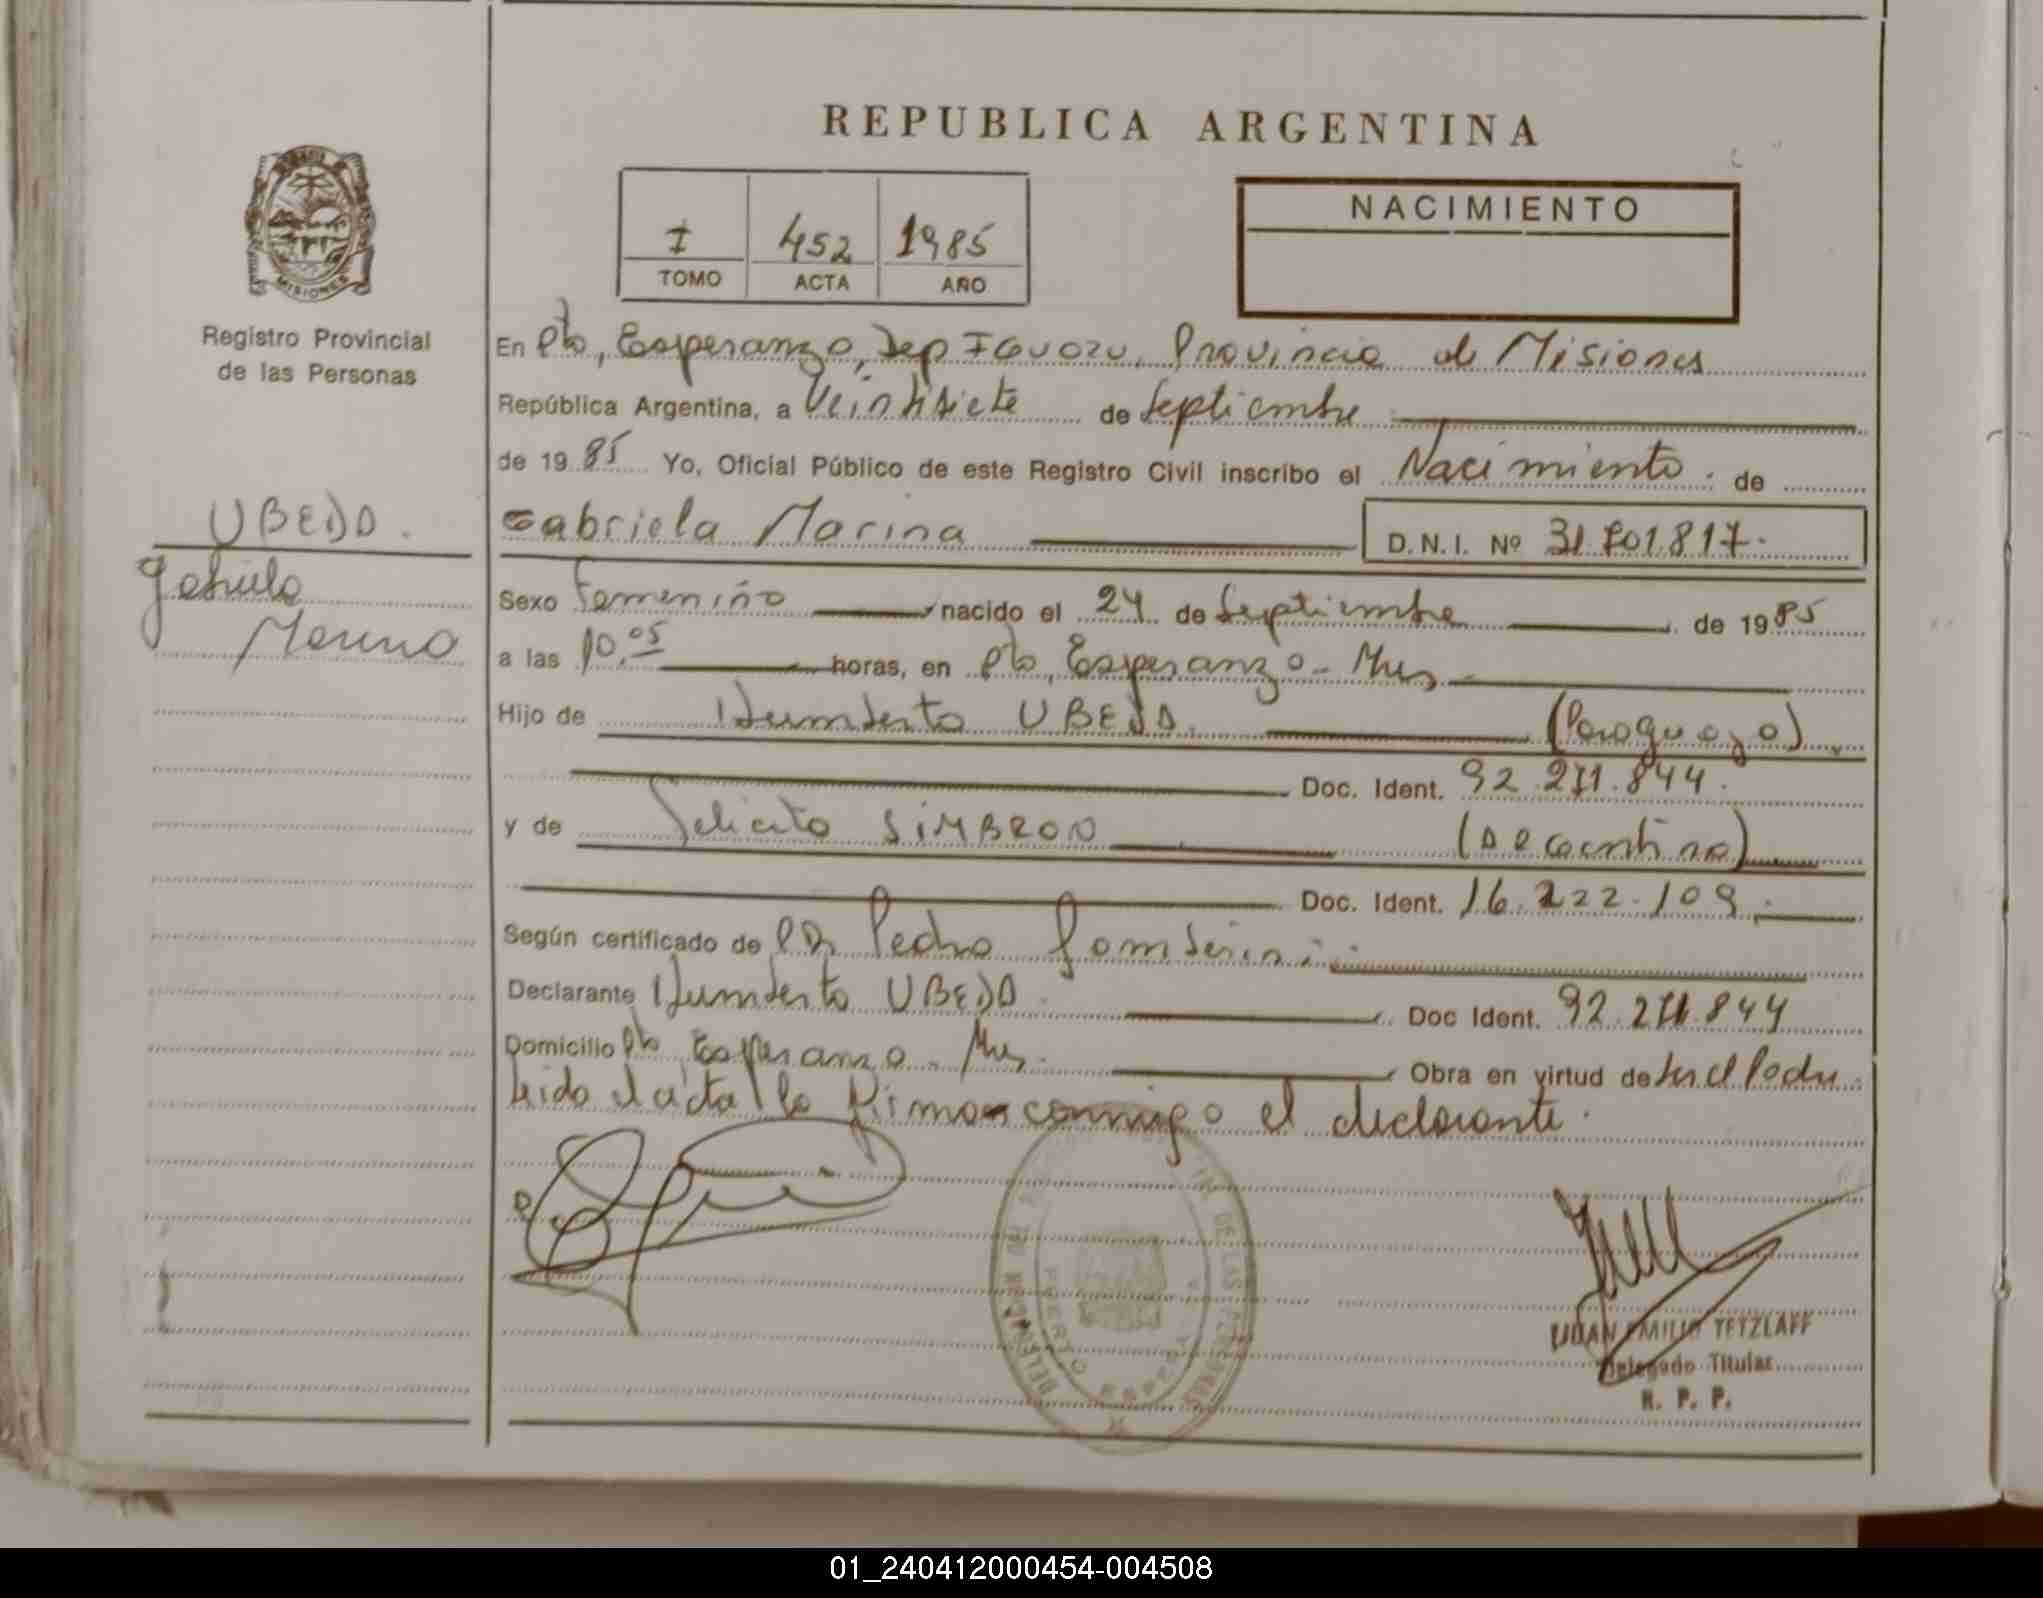 REPUBLICA ARGENTINA
I 452 1985
TOMO ACTA AÑO
NACIMIENTO
MISIONES
Registro Provincial
de las Personas
En Pto, Esperanza, Dep IGUAZU, Provincia de Misiones
República Argentina, a Veintisiete de Septiembre
de 1985 Yo, Oficial Público de este Registro Civil inscribo el Nacimiento de
UBEDA.
Gabriela
Marina
Gabriela Marina D.N.I. Nº 31.701.817.
Sexo Femenino nacido el 24 de Septiembre de 1985
a las 10,05 horas, en Pto, Esperanza - Mnes
Hijo de Humberto UBEDA (Paraguayo)
Doc. Ident. 92.271.844.
y de Felicita SIMBRON (Argentina)
Doc. Ident. 16.222.109.
Según certificado de Pedro
Declarante Humberto UBEDA Doc Ident. 92.271.844
Domicilio Pto Esperanza - Mnes. Obra en virtud de ser el Padre.
Leido el acta la firma conmigo el declarante.
DE LAS PERSONAS
PUERTO ESPERANZA
JUAN EMILIO TETZLAFF
Delegado Titular
R. P. P.
01_240412000454-004508